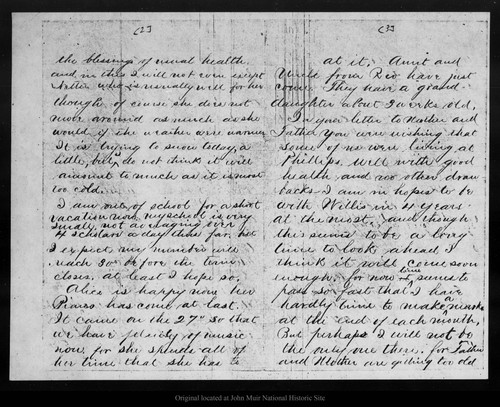 (2)
the blessing of usual health
and in this I will not even except
Nellie who is usually well for her
though of course she does not
move around as much as she
would if the weather were warmer
It is trying to snow today, a
little, but I do not think it will
amount to much as it is most
too cold.
I am out of school for a short
vacation now, my school is very
small, not averaging over
4 scholars a day thus far, but
I expect my number will
reach 30 before the term
closes, at least I hope so,
Alice is happy now her
Piano has come at last.
It came on the 27th so that
we have plenty of music
now for she spends all of
her time that she has to
(3)
at it, Aunt and
Uncle from Rio have just
come. They have a grand-
daughter about 2 weeks old.
In your letter to Mother and
Father you were wishing that
some of us were living at
Phillips. Well with good
health and no other draw
backs I am in hopes to be
with Willis in 4 years
at the most, and though
this seems to be a long
time to look ahead I
think it will come soon
enough, for now time seems to
pass so fast that I have
hardly time to make a mark
at the end of each month,
But perhaps I will not be
the only one there, for Father
and Mother are getting too old
Original located at John Muir National Historic Site